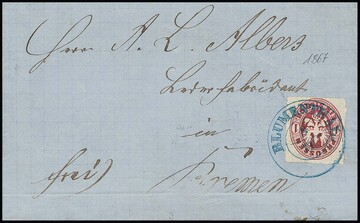 Herrn A. L. Albers
1867
Lederfabrikant
in
frei
Bremen
BLUMENTHAL
PREUSSEN
1